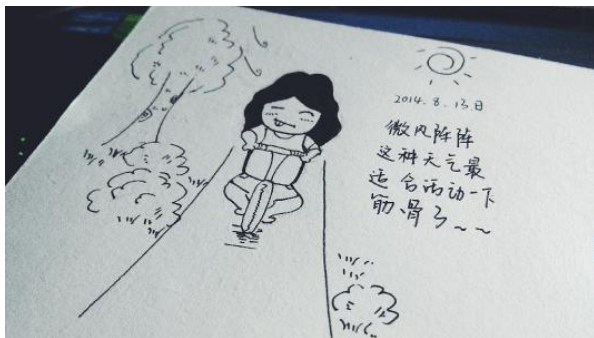 2014.8.13日
微风阵阵
这种天气最
适合活动一下
筋骨了～～